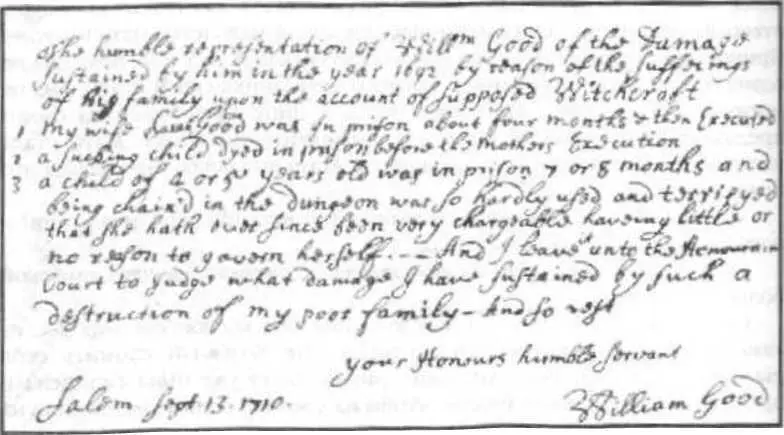 The humble representation of Willm Good of the Damage
sustained by him in the year 1692 by reason of the sufferings
of his family upon the account of supposed Witchcraft
1 My wife Sarah Good was In prison about four months & then Executed
2 a sucking child dyed in prison before the Mothers Execution
3 a child of 4 or 5 years old was in prison 7 or 8 months and
being chain'd in the dungeon was so hardly used and terrifyed
that she hath ever since been very chargeable haveing little or
no reason to govern herself. -- And I leave unto the Honourable
Court to judge what damage I have sustained by such a
destruction of my poor family - And so rest
your Honours humble servant
Salem Sept 13. 1710 William Good